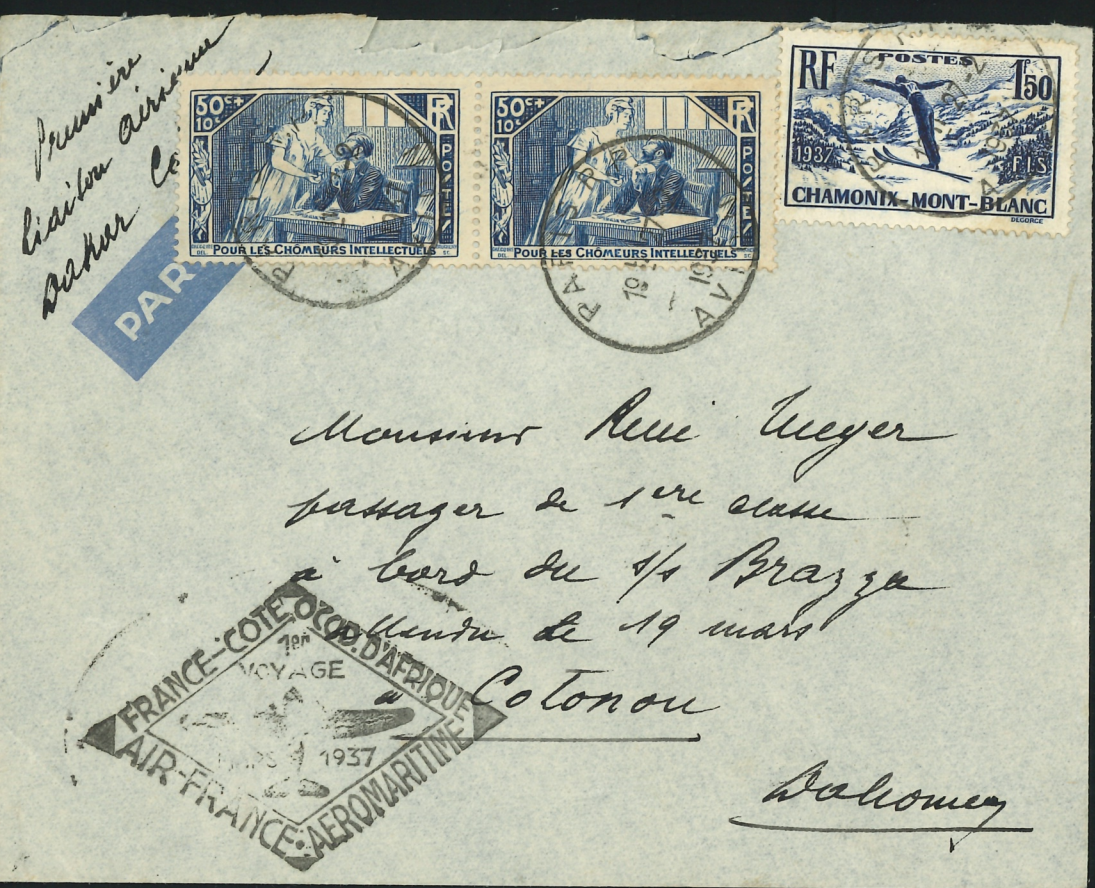 Première
liaison aérienne
Dakar Co
PAR
50c+
10c
RF
POSTES
POUR LES CHÔMEURS INTELLECTUELS
50c+
10c
RF
POSTES
POUR LES CHÔMEURS INTELLECTUELS
RF POSTES 1f50
1937 F.I.S.
CHAMONIX-MONT-BLANC
DECORCE
PARIS
AV
PARIS R.P.
AVI
Monsieur René Meyer
passager de 1ere classe
à bord du s/s Brazza
attendu le 19 mars
à Cotonou
Dahomey
FRANCE-COTE OCCID. D'AFRIQUE
1er
VOYAGE
MARS 1937
AIR-FRANCE: AEROMARITIME